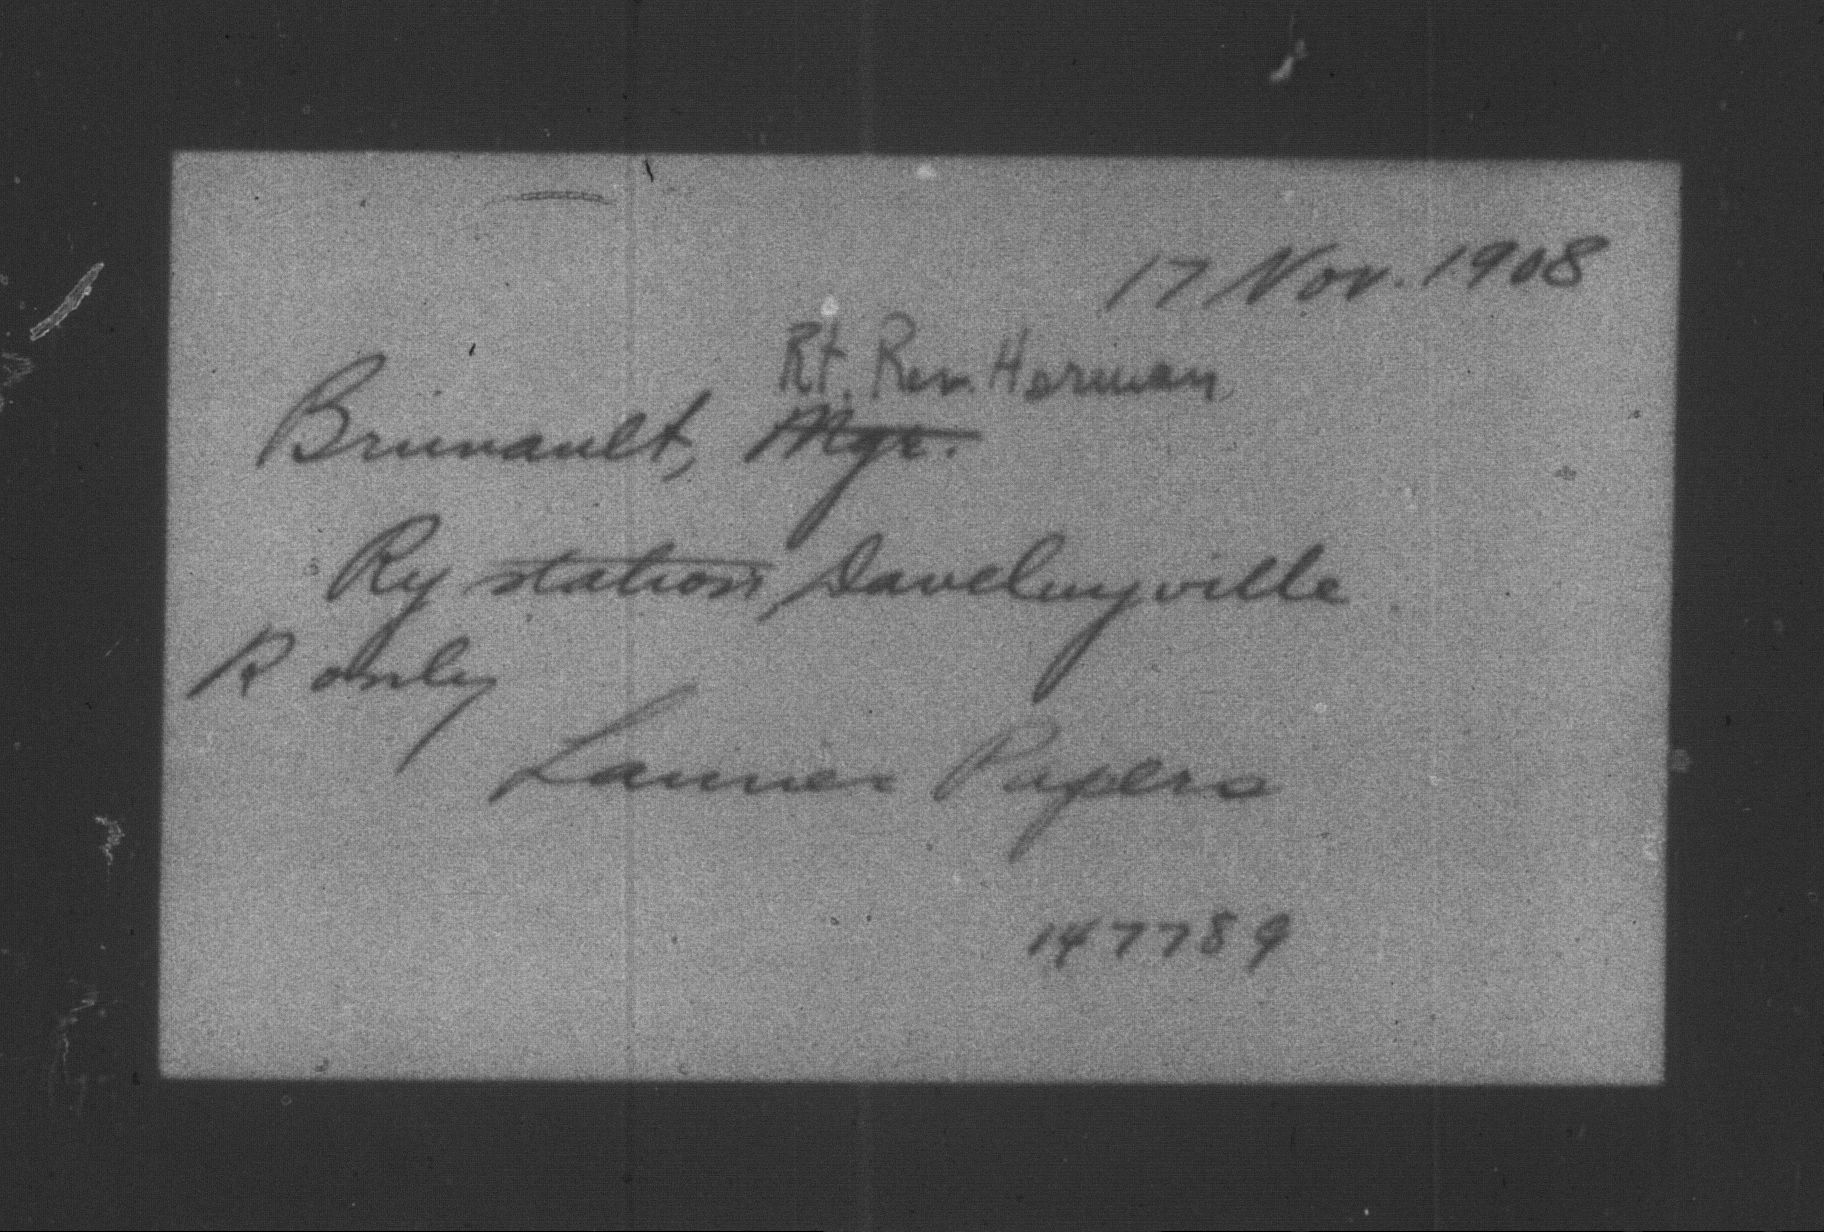 17 Nov. 1908
Rt. Rev. Herman
Brunault, Mgr.
Ry station, Daveluyville
R only
Laurier Papers
147789